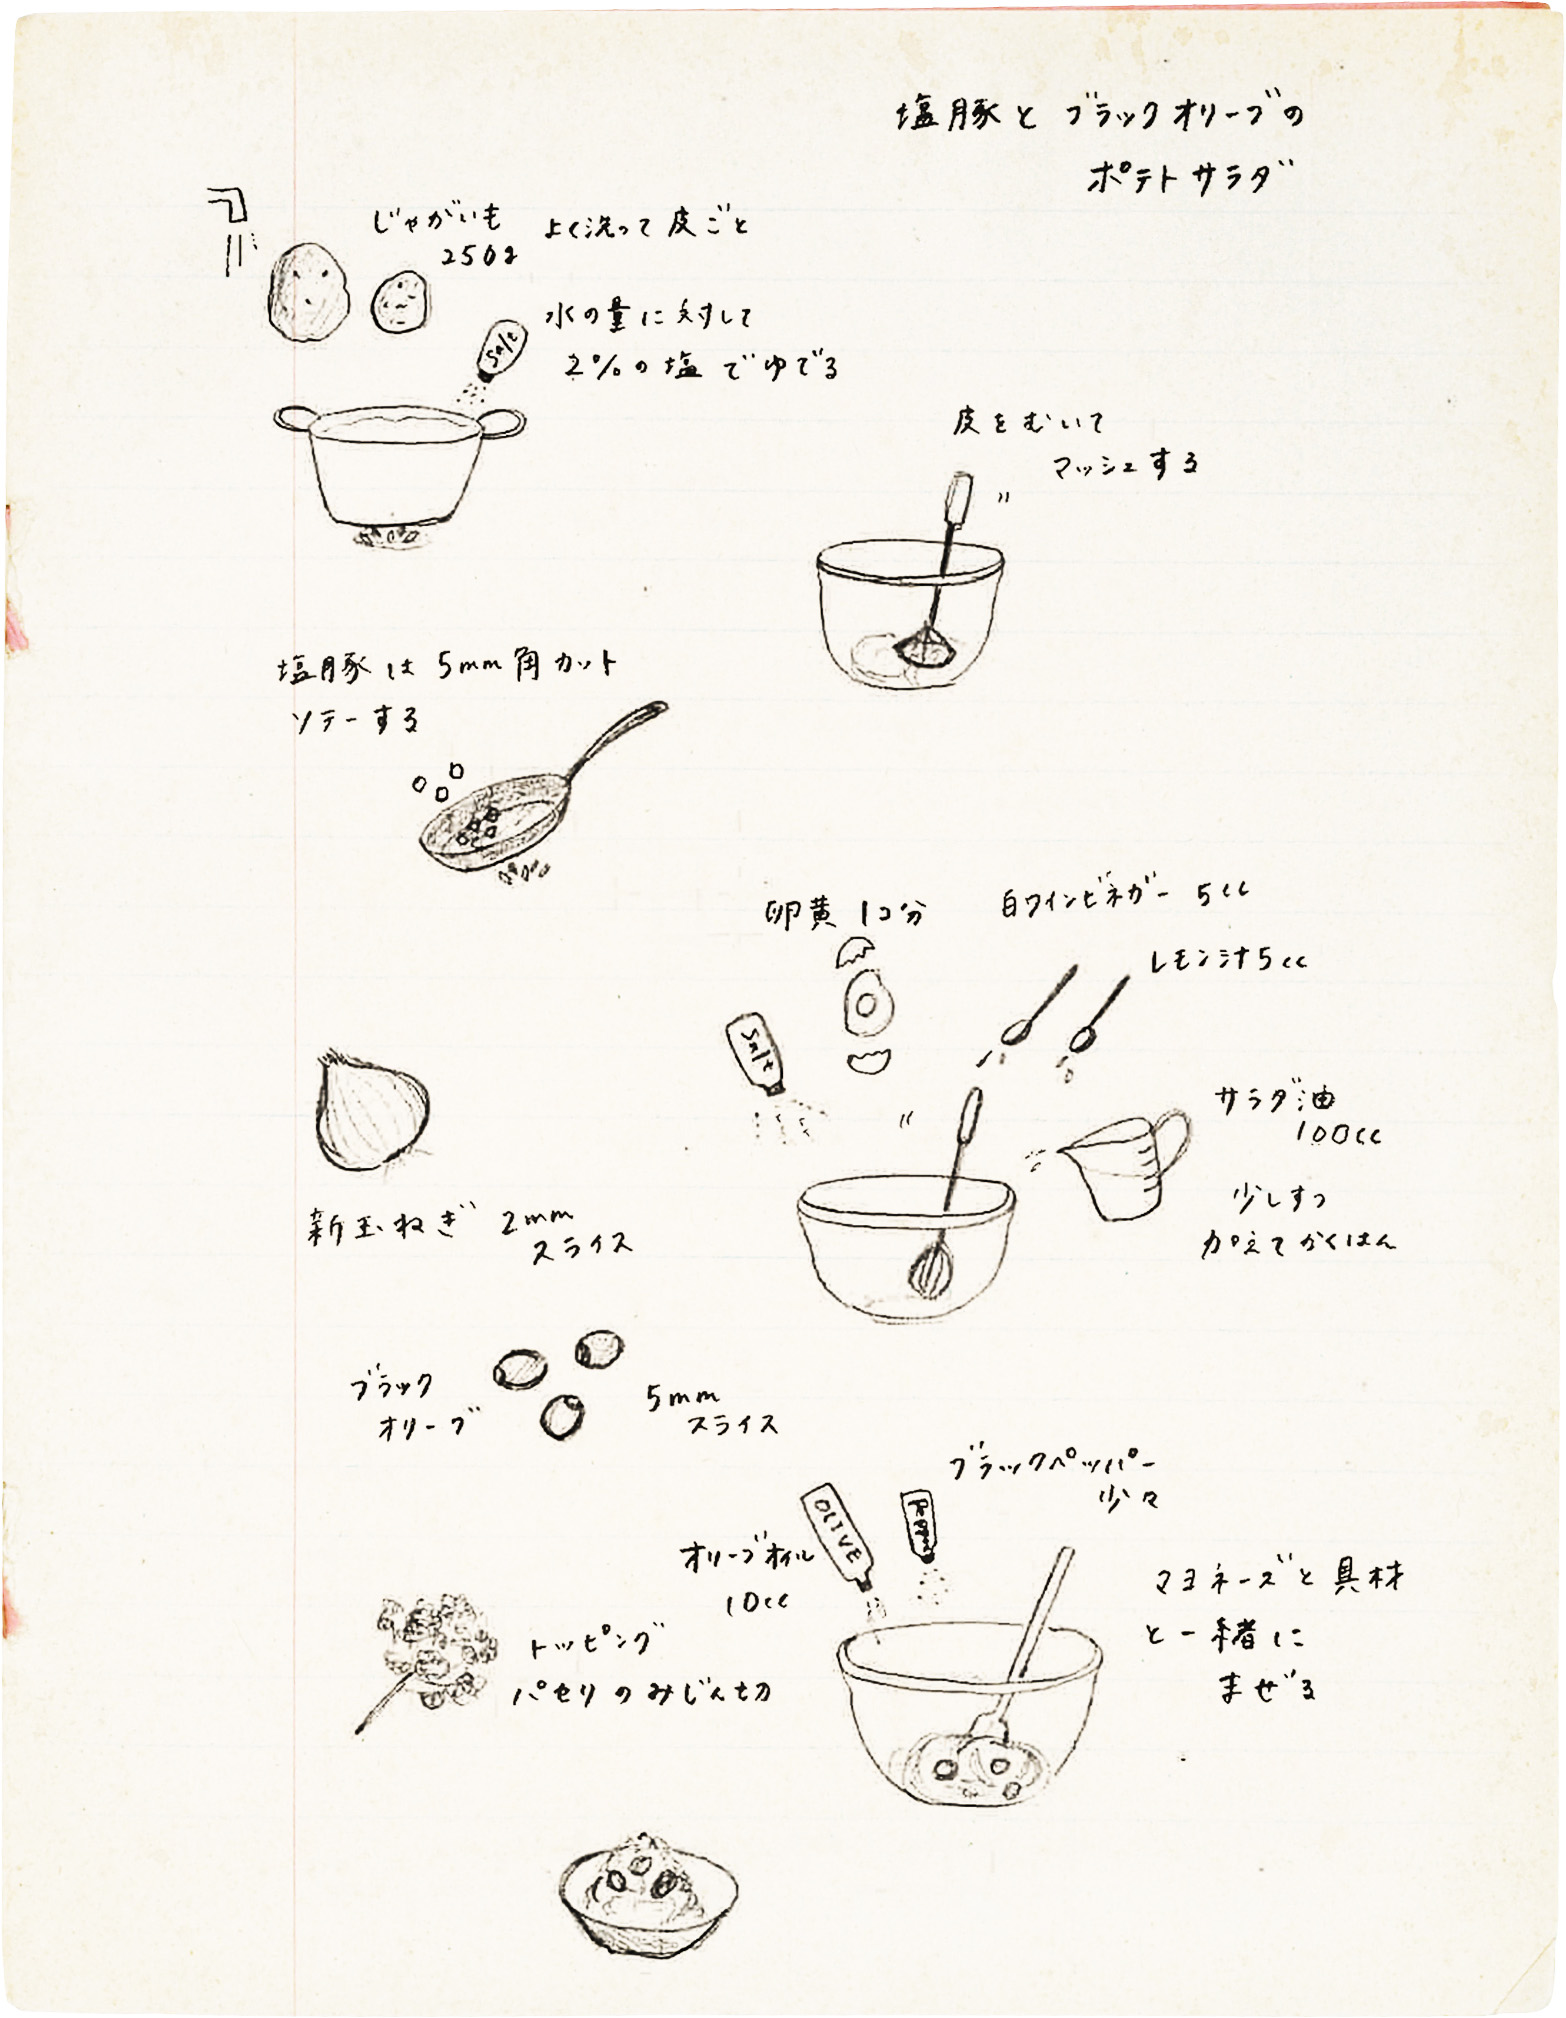 塩豚とブラックオリーブの
ポテトサラダ
じゃがいも
250g
よく洗って皮ごと
水の量に対して
2%の塩でゆでる
Salt
皮をむいて
マッシュする
塩豚は5mm角カット
ソテーする
卵黄1コ分
白ワインビネガー 5cc
レモン汁5cc
Salt
サラダ油
100cc
少しずつ
加えてかくはん
新玉ねぎ 2mm
スライス
ブラック
オリーブ
5mm
スライス
ブラックペッパー
少々
OLIVE
Pepper
オリーブオイル
10cc
マヨネーズと具材
と一緒に
まぜる
トッピング
パセリのみじん切